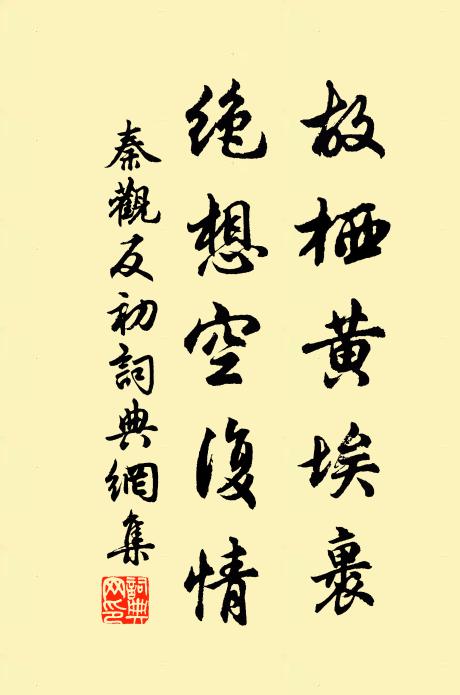 故栖黄埃裹
絶想空復情
秦觀反初詞典網集
詞典
网印